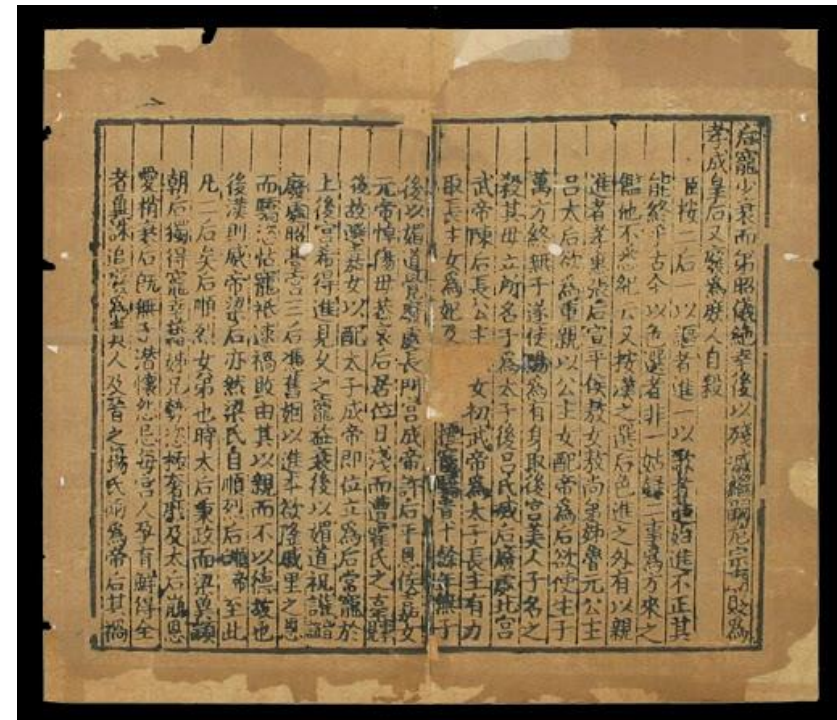 后寵少衰而弟昭儀絶幸後以殘滅繼嗣危宗廟貶為
孝成皇后又廢為庶人自殺
臣按二后一以謳者進一以歌者進始進不正其
能終乎古今以色選者非一姑録二事為方來之
鑑他不悉紀云又按漢之選后色進之外有以親
進者孝惠張后宣平侯敖女敖尚帝姊魯元公主
吕太后欲為重親以公主女配帝為后欲使生子
萬方終無子遂使陽為有身取後宮美人子名之
殺其母立所名子為太子後吕氏滅后廢處北宮
武帝陳后長公主 女初武帝為太子長主有力
取長主女為妃及 擅寵驕貴十餘年無子
後以媚道覺廢處長門宮成帝許后平恩侯嘉女
元帝悼傷母恭哀后居位日淺而遭霍氏之辜
後故選嘉女以配太子成帝即位立為后常寵於
上後宮希得進見父之寵益衰後以媚道祝詛
廢處昭臺宮三后馮舊姻以進本欲隆戚里之恩
而驕恣怙寵祇速禍敗由其以親而不以德故也
後漢則威帝梁后亦然梁氏自順烈后 帝至此
凡二后矣后順烈女弟也時太后秉政而梁冀顓
朝后獨得寵幸藉姊兄勢 極奢 及太后崩恩
愛稍衰后既無子潜懷怨忌每宮人孕育鮮得全
者冀誅追廢為貴人及晉之楊氏 為帝后其禍